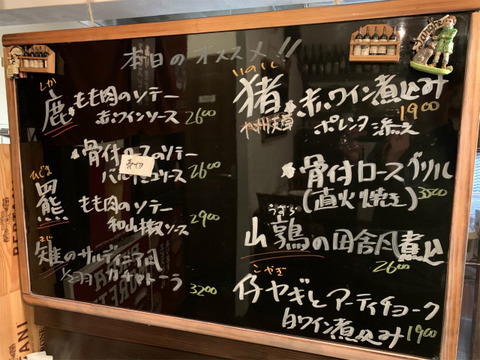 本日のオススメ!!
しか
鹿 もも肉のソテー
赤ワインソース 2600
骨付ロースのソテー
ソース 2600
ひぐま
羆 もも肉のソテー
和山椒ソース 2900
きじ
雉のサルディニア風
1/2羽 カチャトーラ
3200
いのしし
猪 赤ワイン煮込み
九州天草 ポレンタ添え 1900
骨付ロースグリル
(直火焼き) 3500
うずら
山鶉の田舎風煮込
2600
こやぎ
仔ヤギとアーティチョーク
白ワイン煮込み 1900